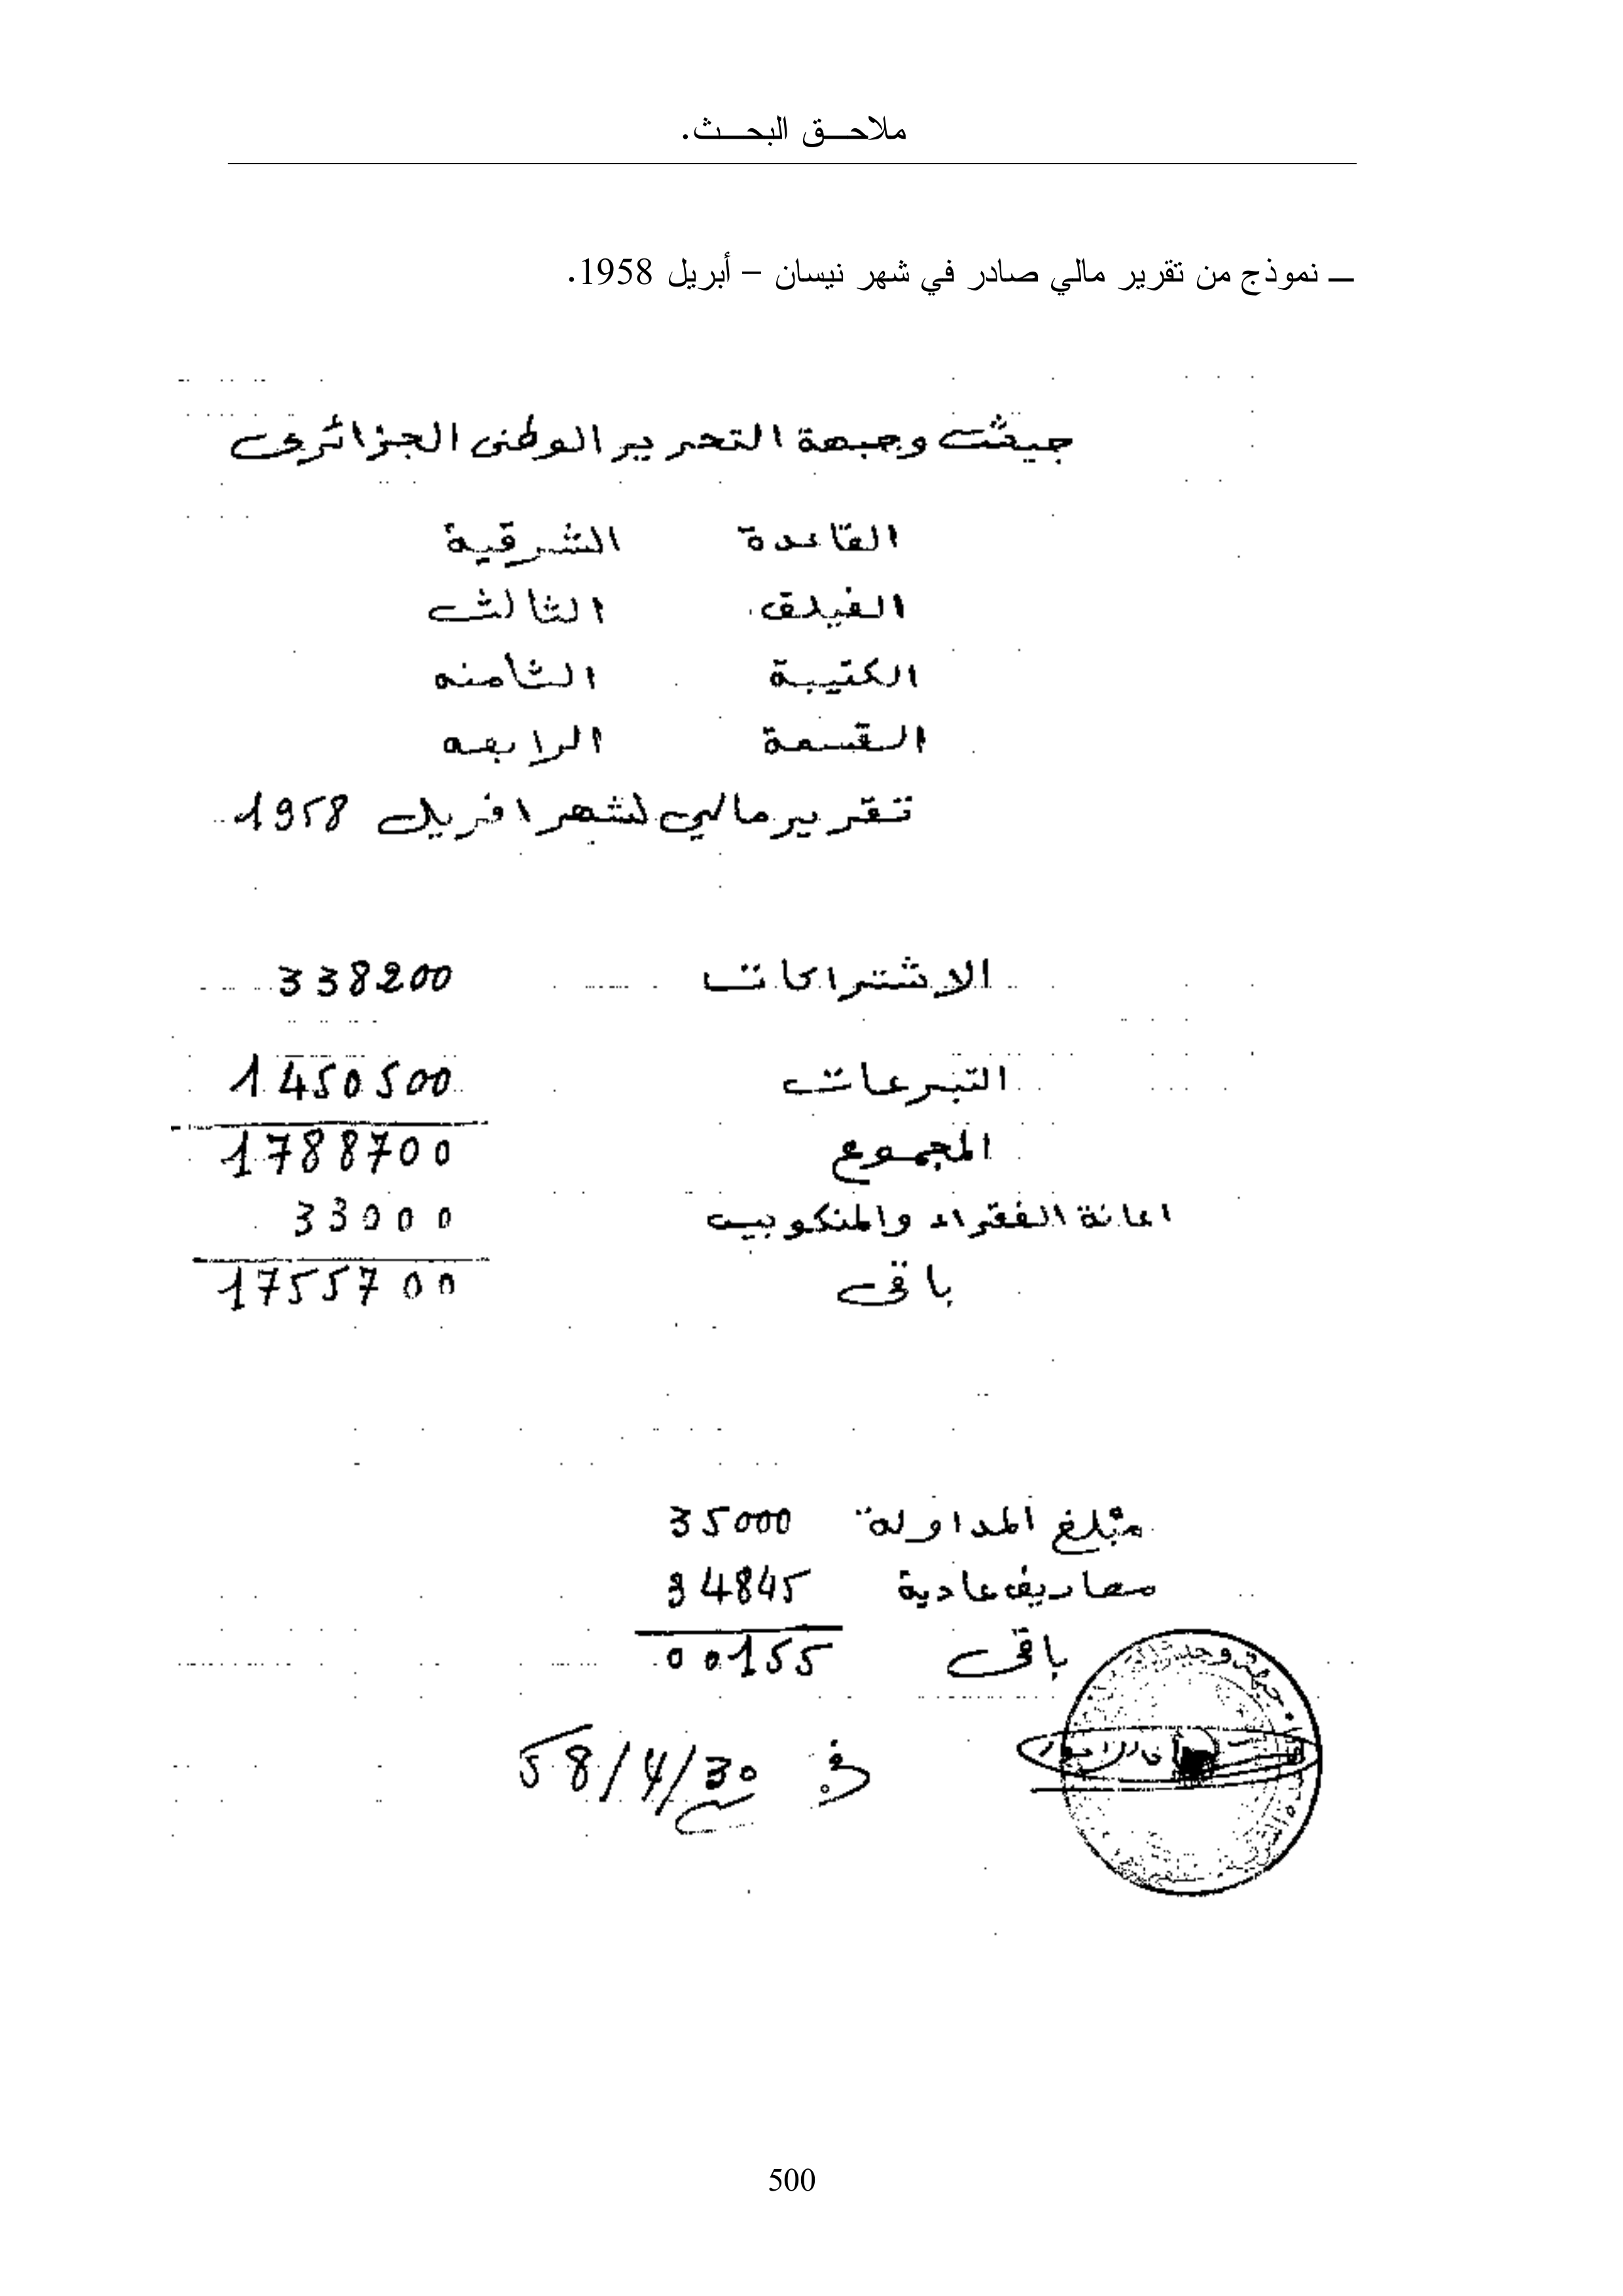 ملاحـــق البحـــث.
ــ نموذج من تقرير مالي صادر في شهر نيسان – أبريل 1958.
جيش وجبهة التحرير الوطني الجزائري
القاعدة الشرقية
الفيلق الثالث
الكتيبة الثامنه
القسمة الرابعه
تقرير مالي لشهر افريل 1958
الاشتراكات 338200
التبرعات 1450500
المجموع 1788700
اعانة الفقراء والمنكوبين 33000
باقى 1755700
مبلغ المداولة 35000
مصاريف عادية 34845
باقى 00155
في 58/4/30
500